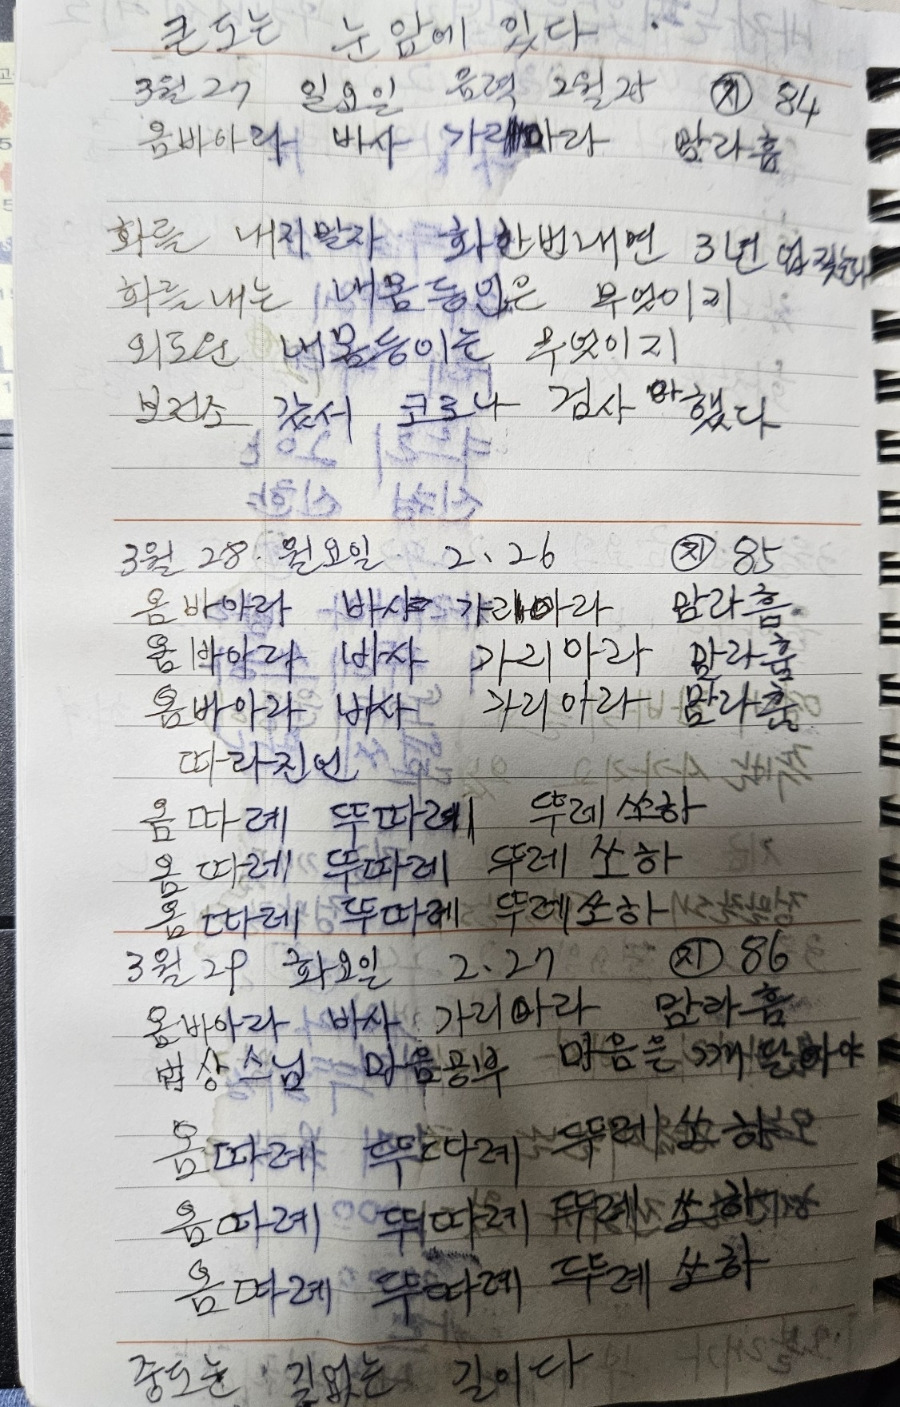 큰 도는 눈 앞에 있다
3월 27 일요일 음력 2월 25 ㉶ 84
옴바아라 바사 가리아라 맘라훔
화를 내지말자 화한번내면 3년 업
화를내는 내몸둥 은 무엇이지
외도인 내몸둥이는 무엇이지
보건소 갔서 코로나 검사 했다
3월 28. 월요일 2. 26 85
옴바아라 바사 가리아라 맘라훔
옴바아라 바사 가리아라 맘라훔
옴바아라 바사 가리아라 맘라훔
따라진언
옴 따레 뚜따레 뚜레 쏘하
옴 따레 뚜따레 뚜레 쏘하
옴 따레 뚜따레 뚜레쏘하
3월 29 화요일 2. 27 86
옴바아라 바사 가리아라 맘라훔
법상스님 마음공부 마음은
옴따레 뚜따레 뚜레 쏘하
옴따레 뚜따레 뚜레 쏘하
옴따레 뚜따레 뚜레 쏘하
중도는 길없는 길이다